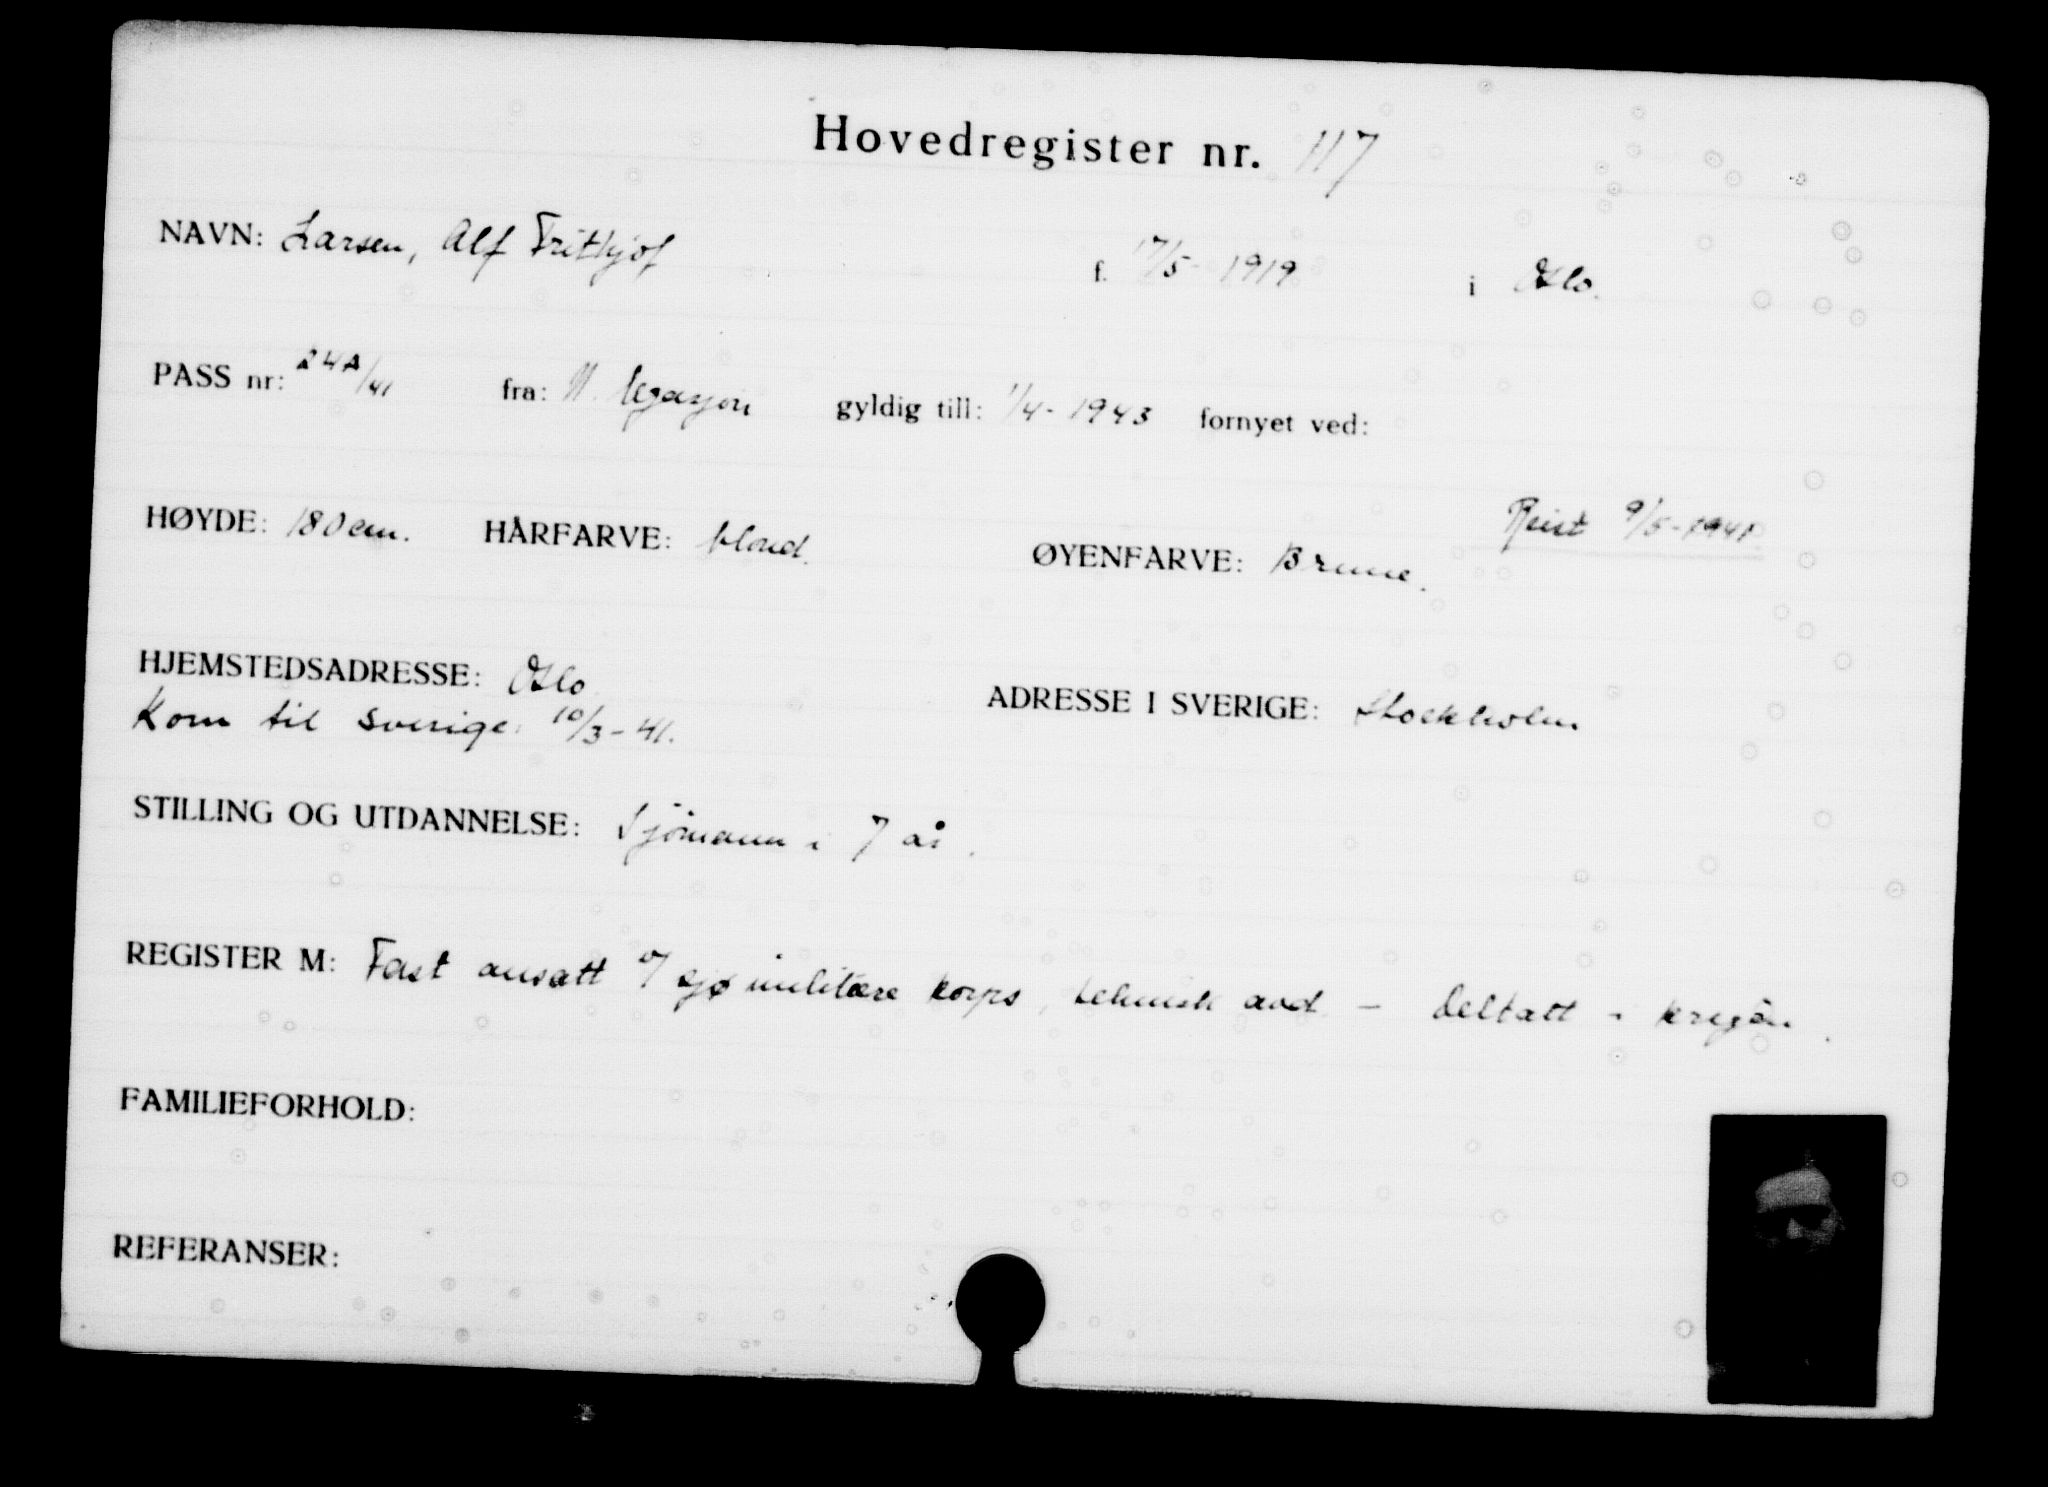 Hovedregister nr. 117
NAVN: Larsen, Alf Frithjof f. 17/5- 1919 i Oslo.
PASS nr: 24A/41 fra: N. legasjon gyldig till: 1/4- 1943 fornyet ved:
Reist 9/5-1941
HØYDE: 180 cm. HÅRFARVE: blond. ØYENFARVE: Brune.
HJEMSTEDSADRESSE: Oslo ADRESSE I SVERIGE: Stockholm
Kom til Sverige: 10/3-41.
STILLING OG UTDANNELSE: Sjömann i 7 år.
REGISTER M: Fast ansatt sjømilitære korps, teknisk avd - Deltatt i krigen.
FAMILIEFORHOLD:
REFERANSER: